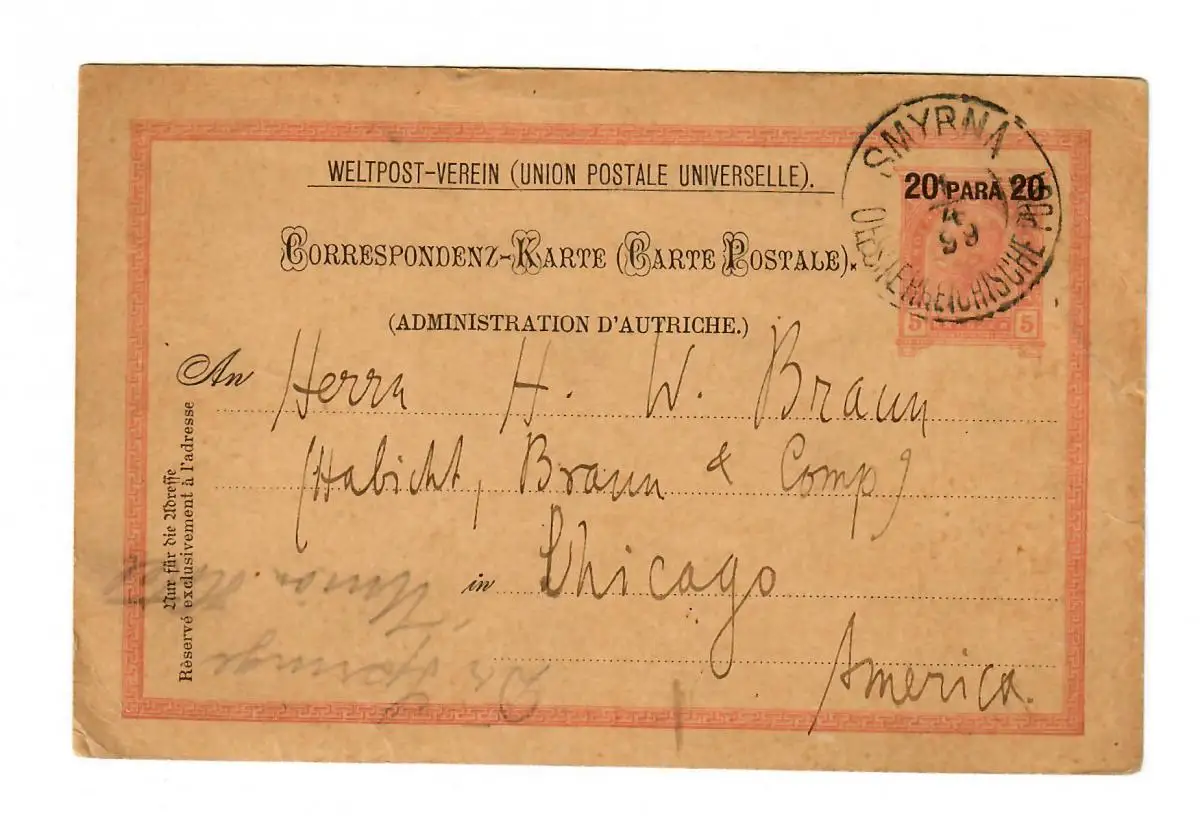 WELTPOST-VEREIN (UNION POSTALE UNIVERSELLE).
CORRESPONDENZ-KARTE (CARTE POSTALE).
(ADMINISTRATION D'AUTRICHE.)
SMYRNA
20 PARA 20
4
99
OESTERREICHISCHE POST
5 5
An Herrn H. W. Braun
(Habicht, Braun & Comp)
in Chicago
America.
Nur für die Adresse
Réservé exclusivement à l'adresse